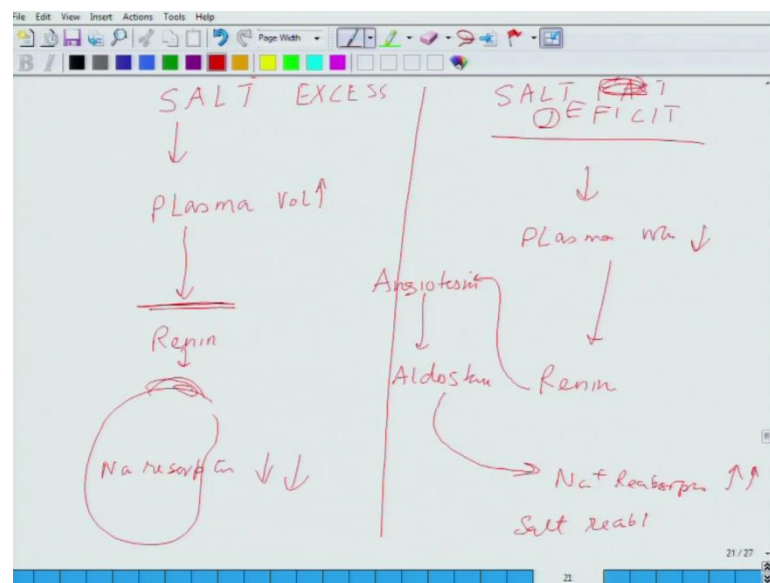 File Edit View Insert Actions Tools Help
Page Width
B I
SALT EXCESS
Plasma Vol↑
Renin
Na resorp
↓↓
SALT
DEFICIT
Plasma
↓
Angiotesin
Renin
Na+ Reabsorp
↑↑
Salt reabl
21 / 27
21